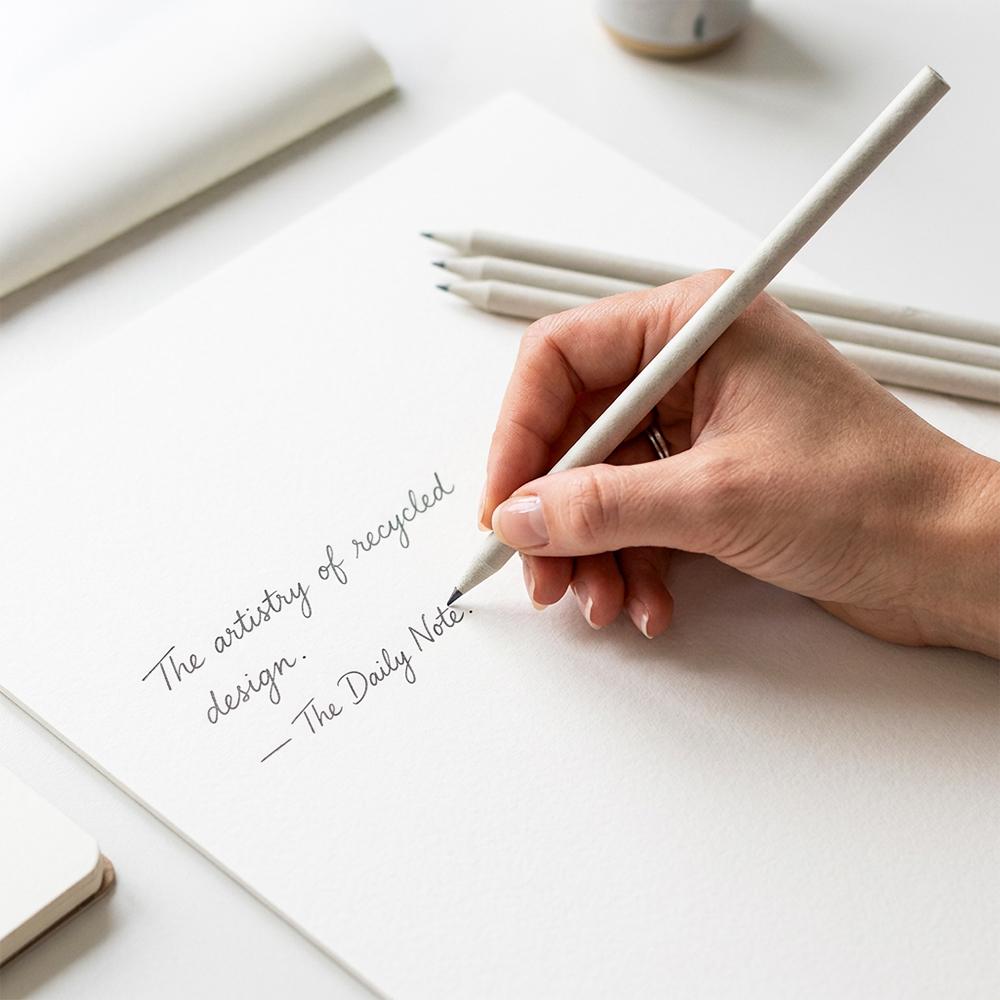 The artistry of recycled
design.
— The Daily Note.